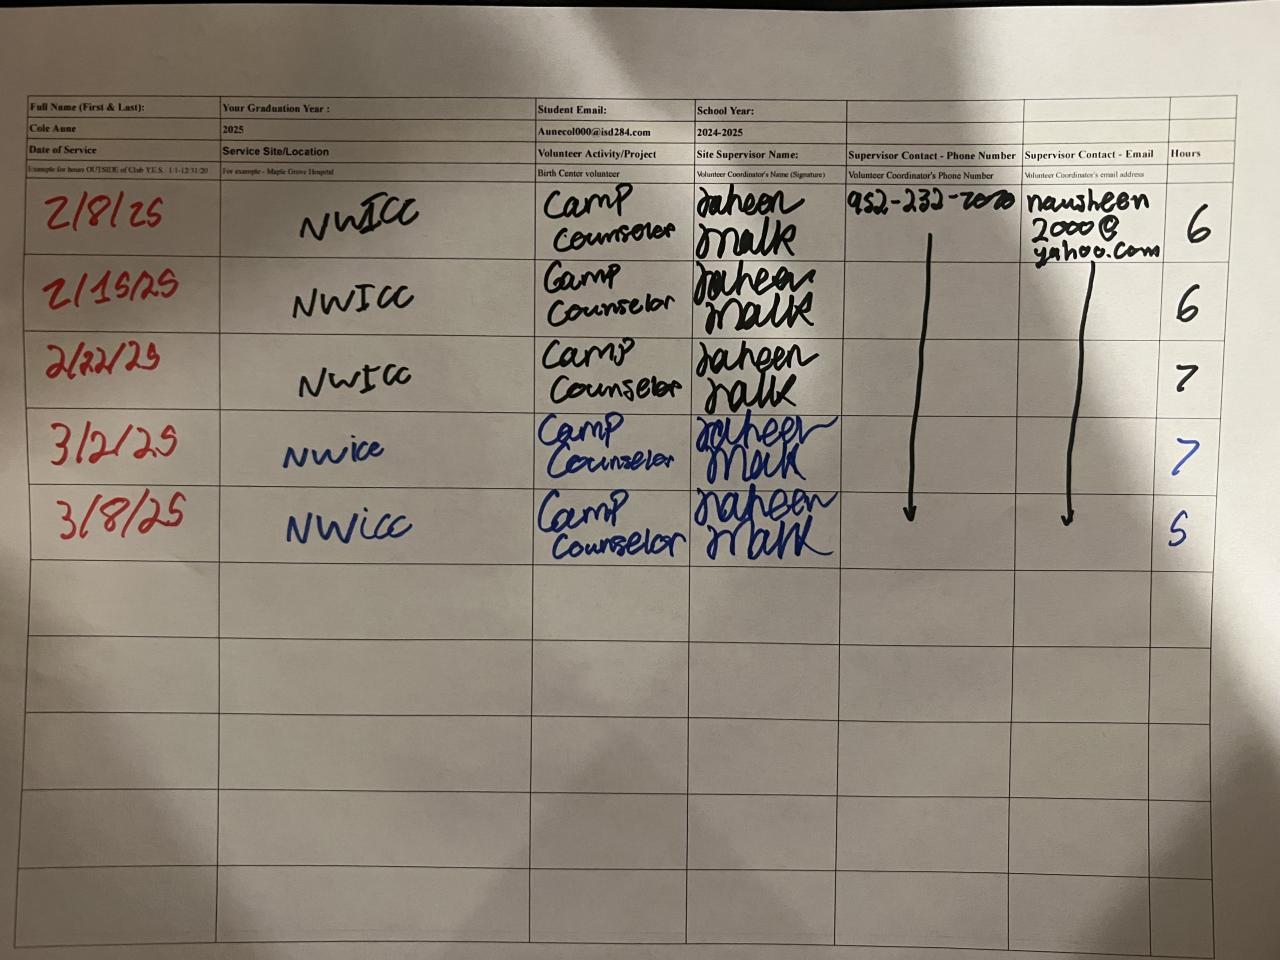 Full Name (First & Last): Your Graduation Year : Student Email: School Year:
Cole Aune 2025 Aunecol000@isd284.com 2024-2025
Date of Service Service Site/Location Volunteer Activity/Project Site Supervisor Name: Supervisor Contact - Phone Number Supervisor Contact - Email Hours
Example for hours OUTSIDE of Club Y.E.S. 1/1-12/31/20 For example - Maple Grove Hospital Birth Center volunteer Volunteer Coordinator's Name (Signature) Volunteer Coordinator's Phone Number Volunteer Coordinator's email address
2/8/25 NWICC Camp Counselor 952-232- nausheen 2000@ yahoo.com 6
2/15/25 NWICC Camp Counselor 6
2/22/25 NWICC Camp Counselor 7
3/2/25 NWicc Camp Counselor 7
3/8/25 NWicc Camp Counselor 5